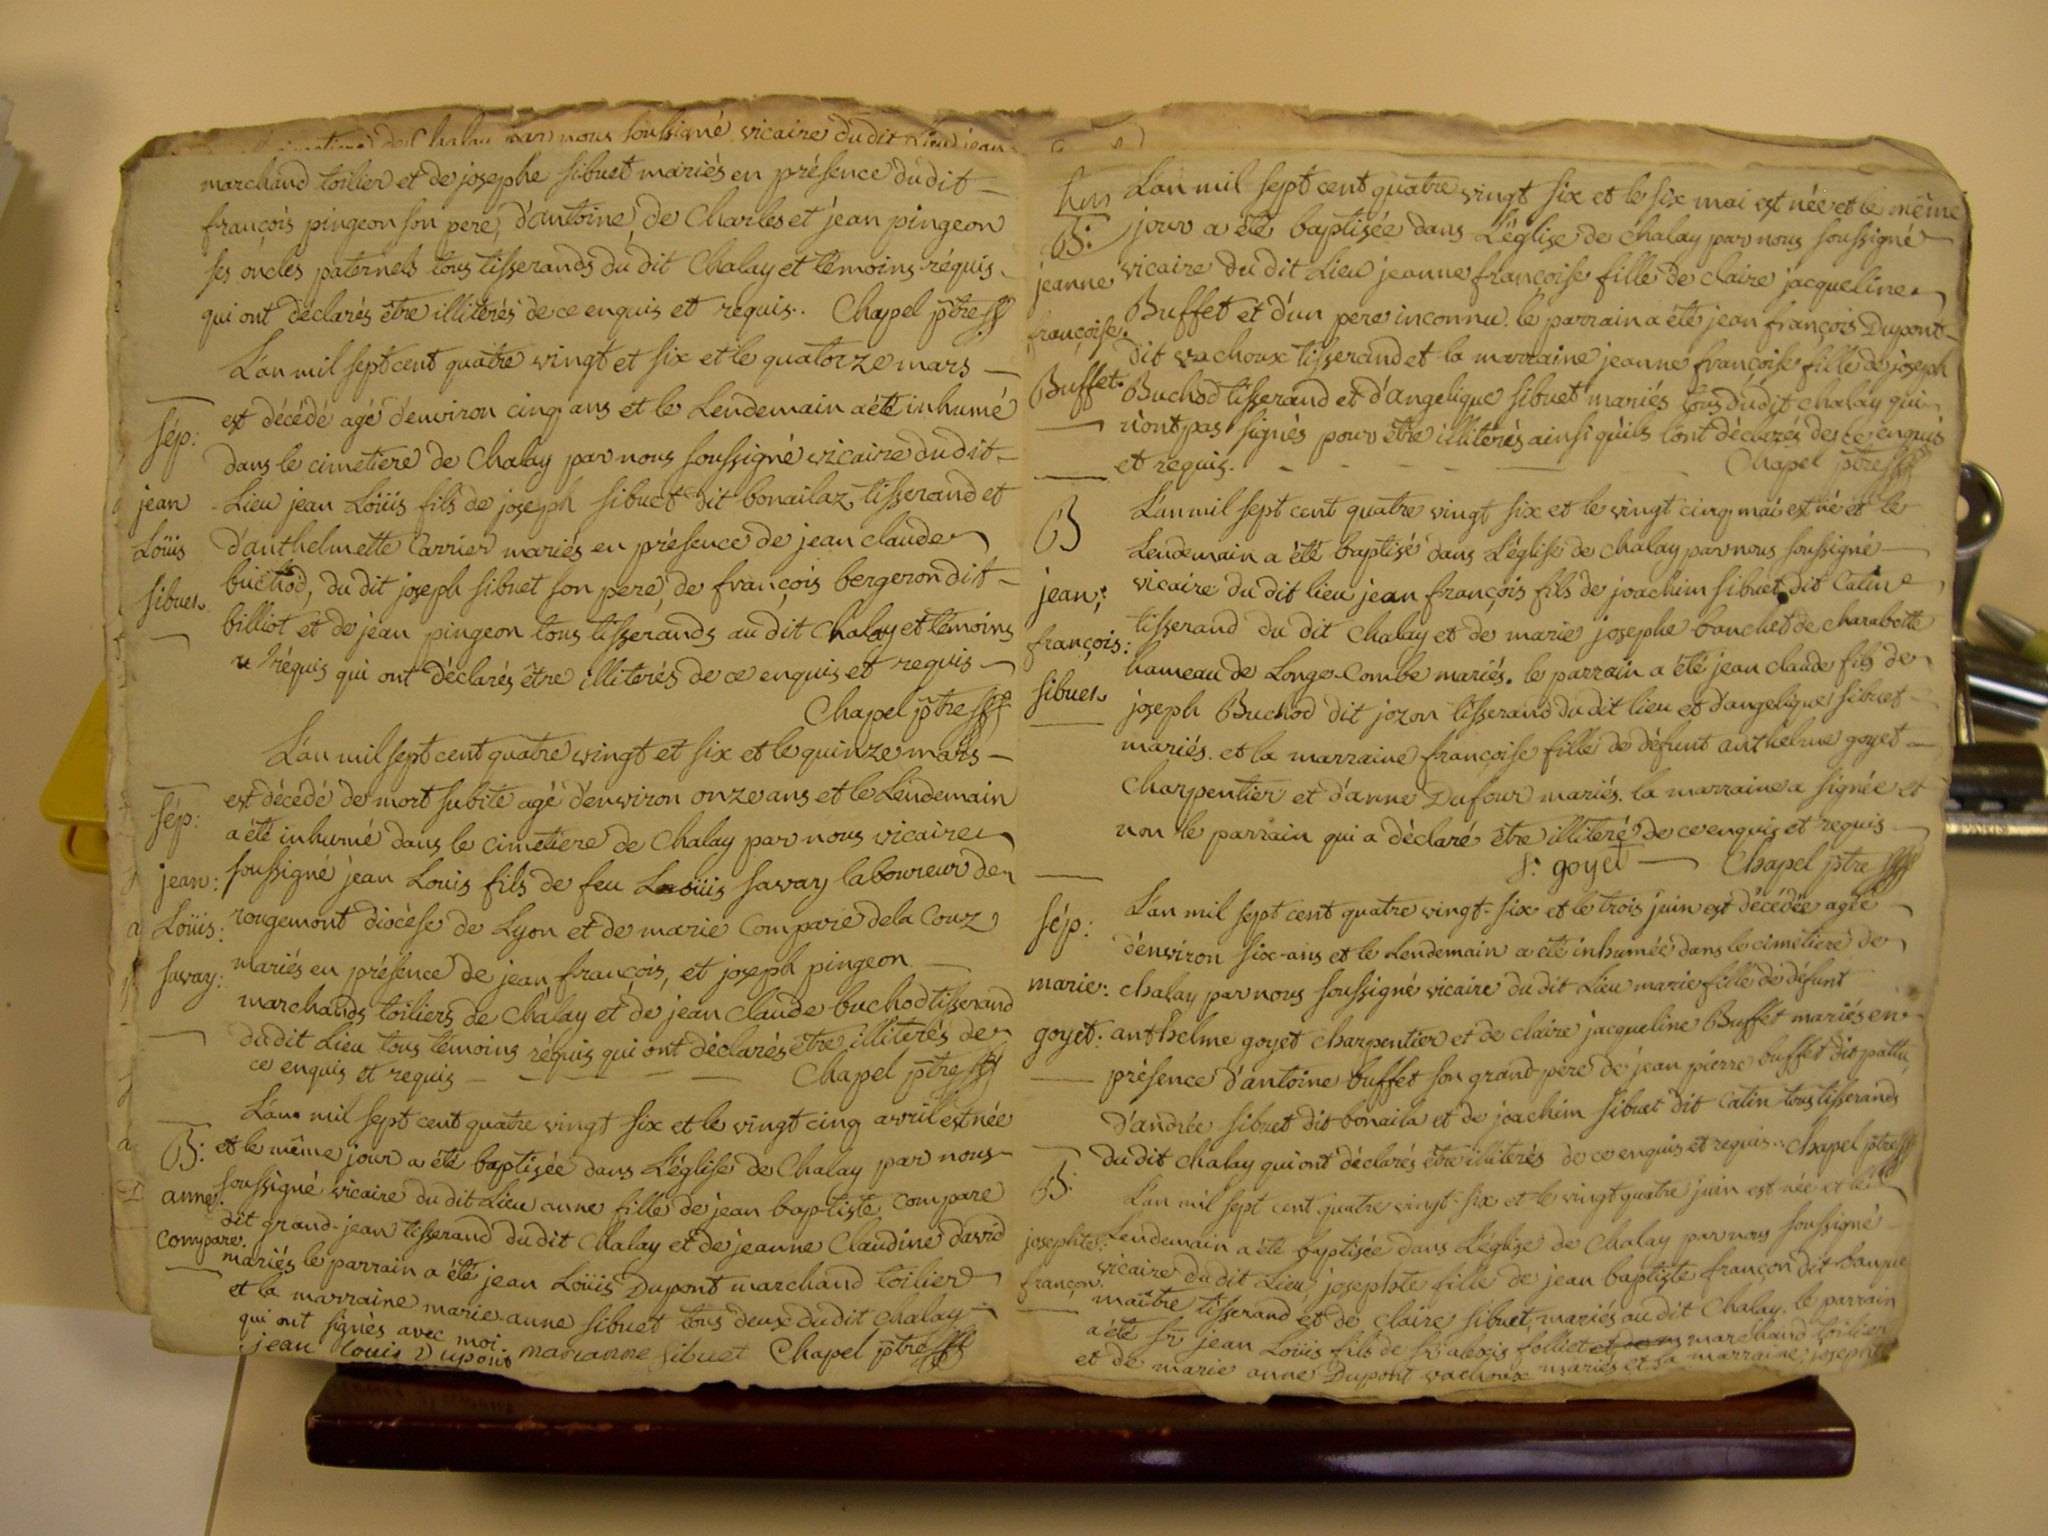 cimetiere de Chalay par nous soussigné vicaire du dit Lieu jean
marchand toilier et de josephe sibuet mariés en présence du dit
françois pingeon son pere, d'antoine, de Charles et jean pingeon
ses oncles paternels tous tisserands du dit Chalay et témoins réquis
qui ont déclarés être illitérés de ce enquis et requis. Chapel ptre
L'an mil sept cent quatre vingt et six et le quatorze mars
sép: est décédé agé d'environ cinq ans et le Lendemain a été inhumé
dans le cimetiere de Chalay par nous soussigné vicaire du dit
jean Lieu jean Loüis fils de joseph sibuet dit bonailaz tisserand et
Loüis d'anthelmette Carrier mariés en présence de jean claude
sibuet buchod, du dit joseph sibuet son pere, de françois bergeron dit
billiot et de jean pingeon tous tisserands au dit chalay et témoins
réquis qui ont déclarés être illiterés de ce enquis et requis
Chapel ptre
L'an mil sept cent quatre vingt et six et le quinze mars
sép: est décédé de mort subite agé d'environ onze ans et le Lendemain
a été inhumé dans le cimetiere de Chalay par nous vicaire
jean: soussigné jean Louis fils de feu Loüis savay laboureur de
Loüis: rongemont diocèse de Lyon et de marie Compare de la Couz
savay: mariés en présence de jean françois, et joseph pingeon
marchands toiliers de Chalay et de jean claude buchod tisserand
du dit Lieu tous témoins réquis qui ont déclarés être illiterés de
ce enquis et requis Chapel ptre
L'an mil sept cent quatre vingt six et le vingt cinq avril est née
B: et le même jour a été baptisée dans L'église de Chalay par nous
anne: soussigné vicaire du dit Lieu anne fille de jean baptiste compare
compare. dit grand-jean tisserand du dit Chalay et de jeanne Claudine david
mariés le parrain a été jean Loüis Dupont marchand toilier
et la marraine marie anne sibuet tous deux du dit chalay
qui ont signés avec moi.
jean louis Dupont marianne sibuet Chapel ptre
L'an mil sept cent quatre vingt six et le six mai est née et le même
B: jour a été baptisée dans L'église de chalay par nous soussigné
jeanne vicaire du dit Lieu jeanne françoise fille de claire jacqueline
françoise Buffet et d'un pere inconnu. le parrain a été jean françois Dupont
dit vachoux tisserand et la marraine jeanne françoise fille de joseph
Buffet. Buchod tisserand et d'angelique sibuet mariés tous du dit chalay qui
n'ont pas signés pour être illiterés ainsi qu'ils l'ont déclarés de ce enquis
et requis. Chapel ptre
B L'an mil sept cent quatre vingt six et le vingt cinq mai est né et le
Lendemain a été baptisé dans L'église de chalay par nous soussigné
jean: vicaire du dit lieu jean françois fils de joachim sibuet dit Catin
tisserand du dit Chalay et de marie josephe bonchet de charabotte
françois: hameau de Longe-Combe mariés. le parrain a été jean claude fils de
sibuet joseph Buchod dit jozon tisserand du dit lieu et d'angelique sibuet
mariés. et la marraine françoise fille de défunt anthelme goyet
charpentier et d'anne Dufour mariés. la marraine a signée et
non le parrain qui a déclaré être illiteré de ce enquis et requis
f. goyet Chapel ptre
L'an mil sept cent quatre vingt-six et le trois juin est décédée agée
sép: d'environ six-ans et le Lendemain a été inhumée dans le cimetiere de
marie: chalay par nous soussigné vicaire du dit Lieu marie fille de défunt
goyet: anthelme goyet charpentier et de claire jacqueline Buffet mariés en
présence d'antoine buffet son grand-pere de jean pierre buffet dit pattu,
d'andrée sibuet dit bonaila et de joachim sibuet dit catin tous tisserands
du dit chalay qui ont déclarés être illiterés de ce enquis et requis. Chapel ptre
B: L'an mil sept cent quatre vingt-six et le vingt quatre juin est née et le
josephte: Lendemain a été baptisée dans L'église de Chalay par nous soussigné
françon. vicaire du dit Lieu josephte fille de jean baptiste françon dit banque
maître tisserand et de claire sibuet, mariés au dit Chalay. le parrain
a été sr. jean Loüis fils de sr. alexis folliet marchand toilier
et de marie anne Dupont vachoux mariés et la marraine josephte